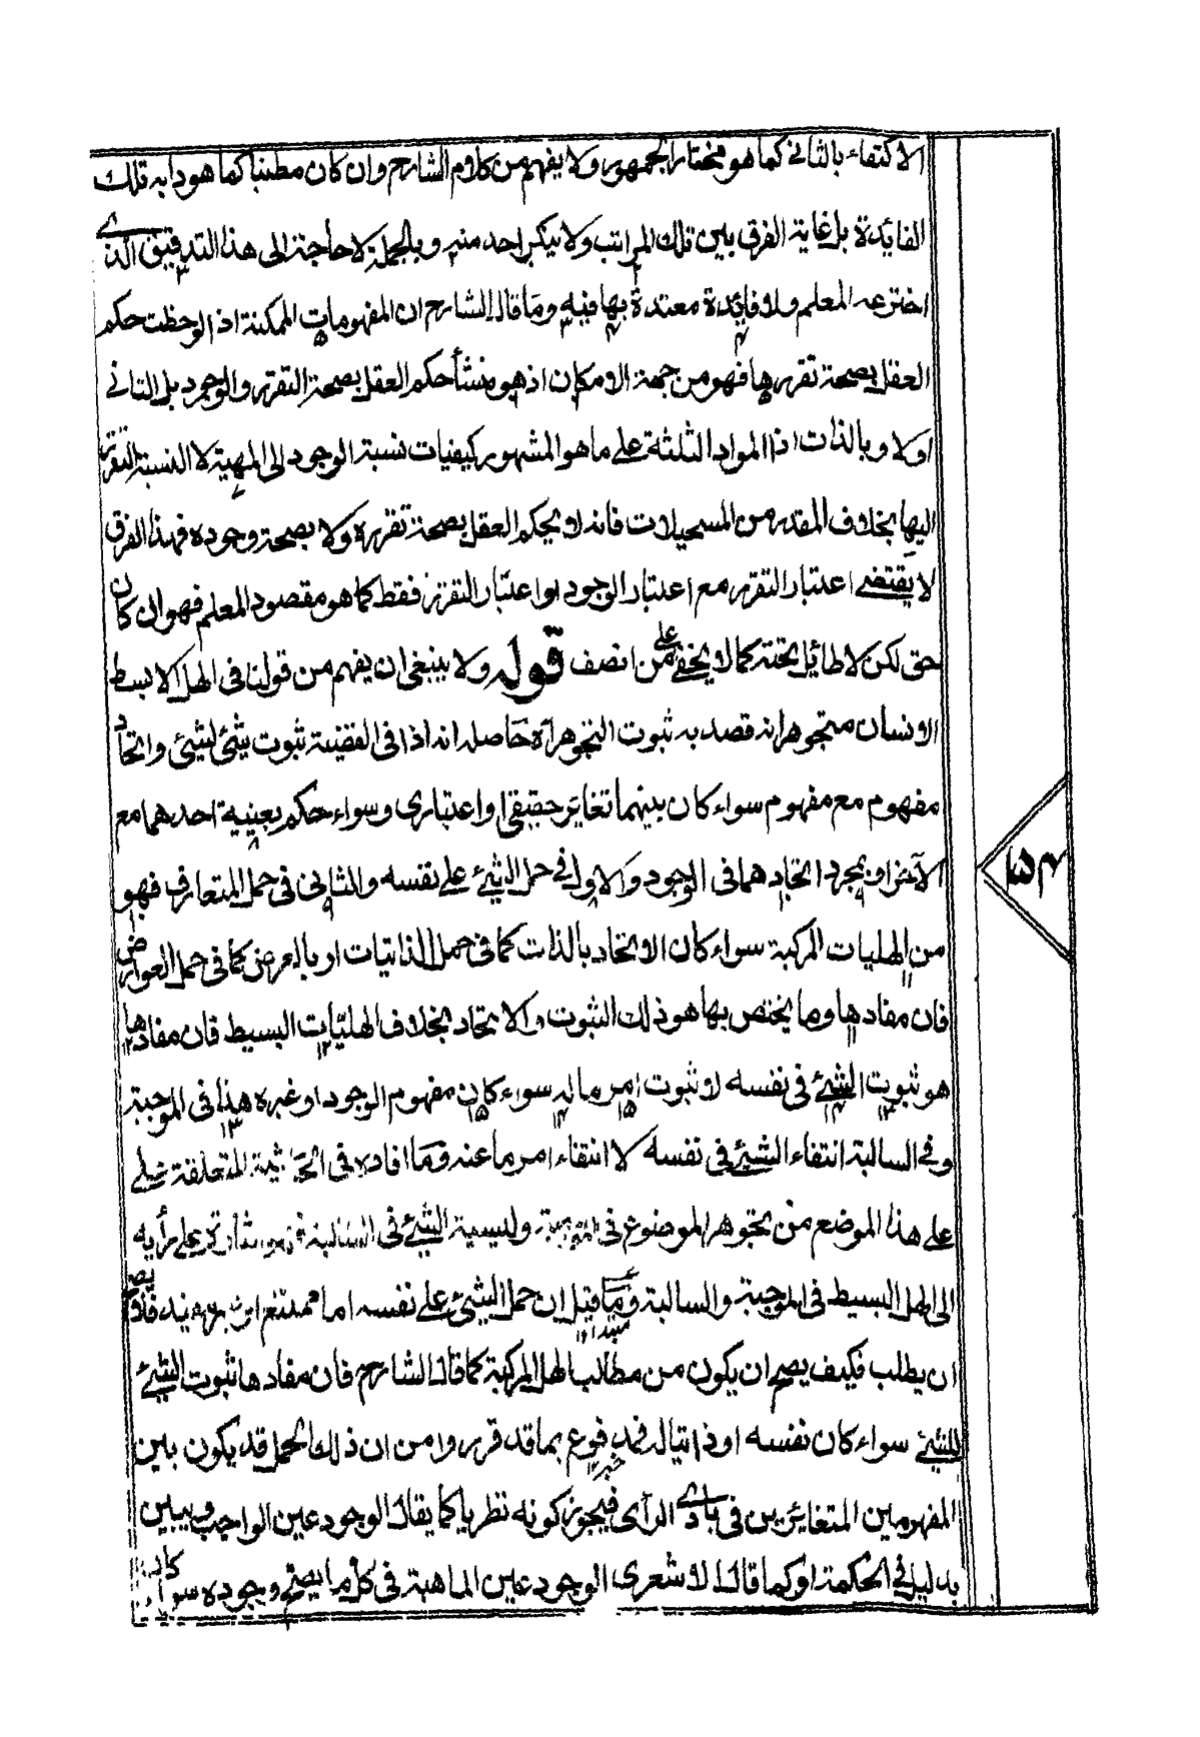 الاكتفاء بالثانى كما هو مختار الجمهور ولا يفهم من كلام الشارح وان كان مطنبا كما هو دابه تلك
الفايدة بل غاية الفرق بين تلك المراتب ولا ينكر احد منه وبالجملة لا حاجة الى هذا التدقيق الذى
اخترعه المعلم ولا فايدة معتدة بها فيه وما قال الشارح ان المفهومات الممكنة اذا لوحظت حكم
العقل بصحة تقررها فهو من جهة الامكان اذ هو منشأ حكم العقل بصحة التقرر والوجود بل الثانى
اولا وبالذات اذ المواد الثلثة على ما هو المشهور كيفيات نسبة الوجود الى المهية لا النسبة التقرر
اليها بخلاف المقدر من المستحيلات فانه لا يحكم العقل بصحة تقرره ولا بصحة وجوده فهذا الفرق
لا يقتضى اعتبار التقرر مع اعتبار الوجود او اعتبار التقرر فقط كما هو مقصود المعلم فهو ان كان
حق لكن لا طائل تحته كما لا يخفى على من انصف قوله ولا ينبغى ان يفهم من قولنا فى الهل الابسط
الانسان متجوهر انه قصد به ثبوت التجوهر آه حاصله انه اذا فى القضية ثبوت شئ لشئ واتحاد
مفهوم مع مفهوم سواء كان بينهما تغاير حقيقى او اعتبارى وسواء حكم بعينية احدهما مع
الآخر او بمجرد اتحادهما فى الوجود والاول فى حمل الشئ على نفسه والثانى فى حمل المتعارف فهو
من الهليات المركبة سواء كان الاتحاد بالذات كما فى حمل الذاتيات او بالعرض كما فى حمل العوارض
فان مفادها وما يختص بها هو ذلك الثبوت والاتحاد بخلاف الهليات البسيط فان مفادها
هو ثبوت الشئ فى نفسه لا ثبوت امر ما له سواء كان مفهوم الوجود او غيره هذا فى الموجبة
وفى السالبة انتفاء الشئ فى نفسه لا انتفاء امر ما عنه وما افاده فى الحاشية المتعلقة على
على هذا الموضع من تجوهر الموضوع فى الموجبة وليسية الشئ فى السالبة على رأيه
الى الهل البسيط فى الموجبة والسالبة وما قيل ان حمل الشئ على نفسه اما ممتنع او غير مفيد فلا يصح
ان يطلب فكيف يصح ان يكون من مطالب الهل المركبة كما قال الشارح فان مفادها ثبوت الشئ
للشئ سواء كان نفسه او ذاتيا له فمدفوع بما قد قرروا من ان ذلك الحمل قد يكون بين
المفهومين المتغايرين فى بادى الرأى فيجوز كونه نظريا كما يقال الوجود عين الواجب ويبين
بدليل فى الحكمة او كما قال الاشعرى الوجود عين الماهية فى كل ما يصح وجوده سواء كان